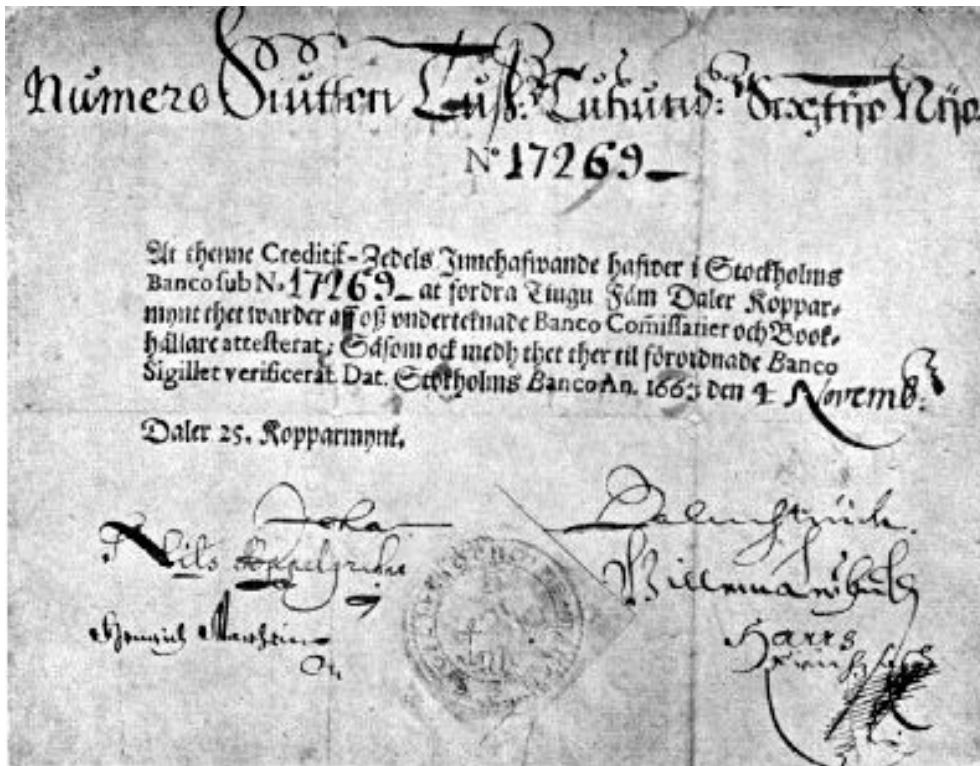 Numero Siutton Tuß: Tuhund: Sextije Nije
No 17269
At thenne Creditif-Zedels Innehafwande hafwer i Stockholms
Banco sub No. 17269 at fordra Tiugu Fäm Daler Koppar-
mynt thet warder aff oß vnderteknade Banco Com̃issarier och Book-
hållare attesterat; Såsom ock medh thet ther til förordnade Banco
Sigillet verificerat. Dat. Stockholms Banco An. 1663 den 4 Novemb:
Daler 25. Kopparmynt.
Johan Palmstruck
Nils
Hinrich
Hans